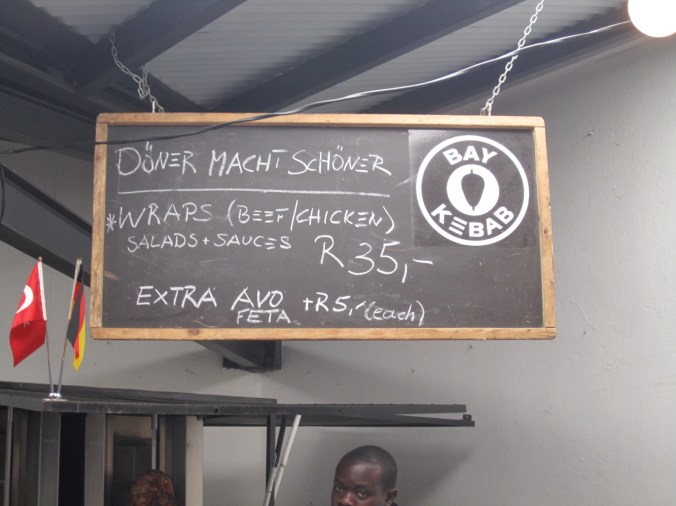 DÖNER MACHT SCHÖNER
*WRAPS (BEEF/CHICKEN)
SALADS + SAUCES
R35,-
EXTRA AVO +R5,-(each)
FETA
BAY
KEBAB